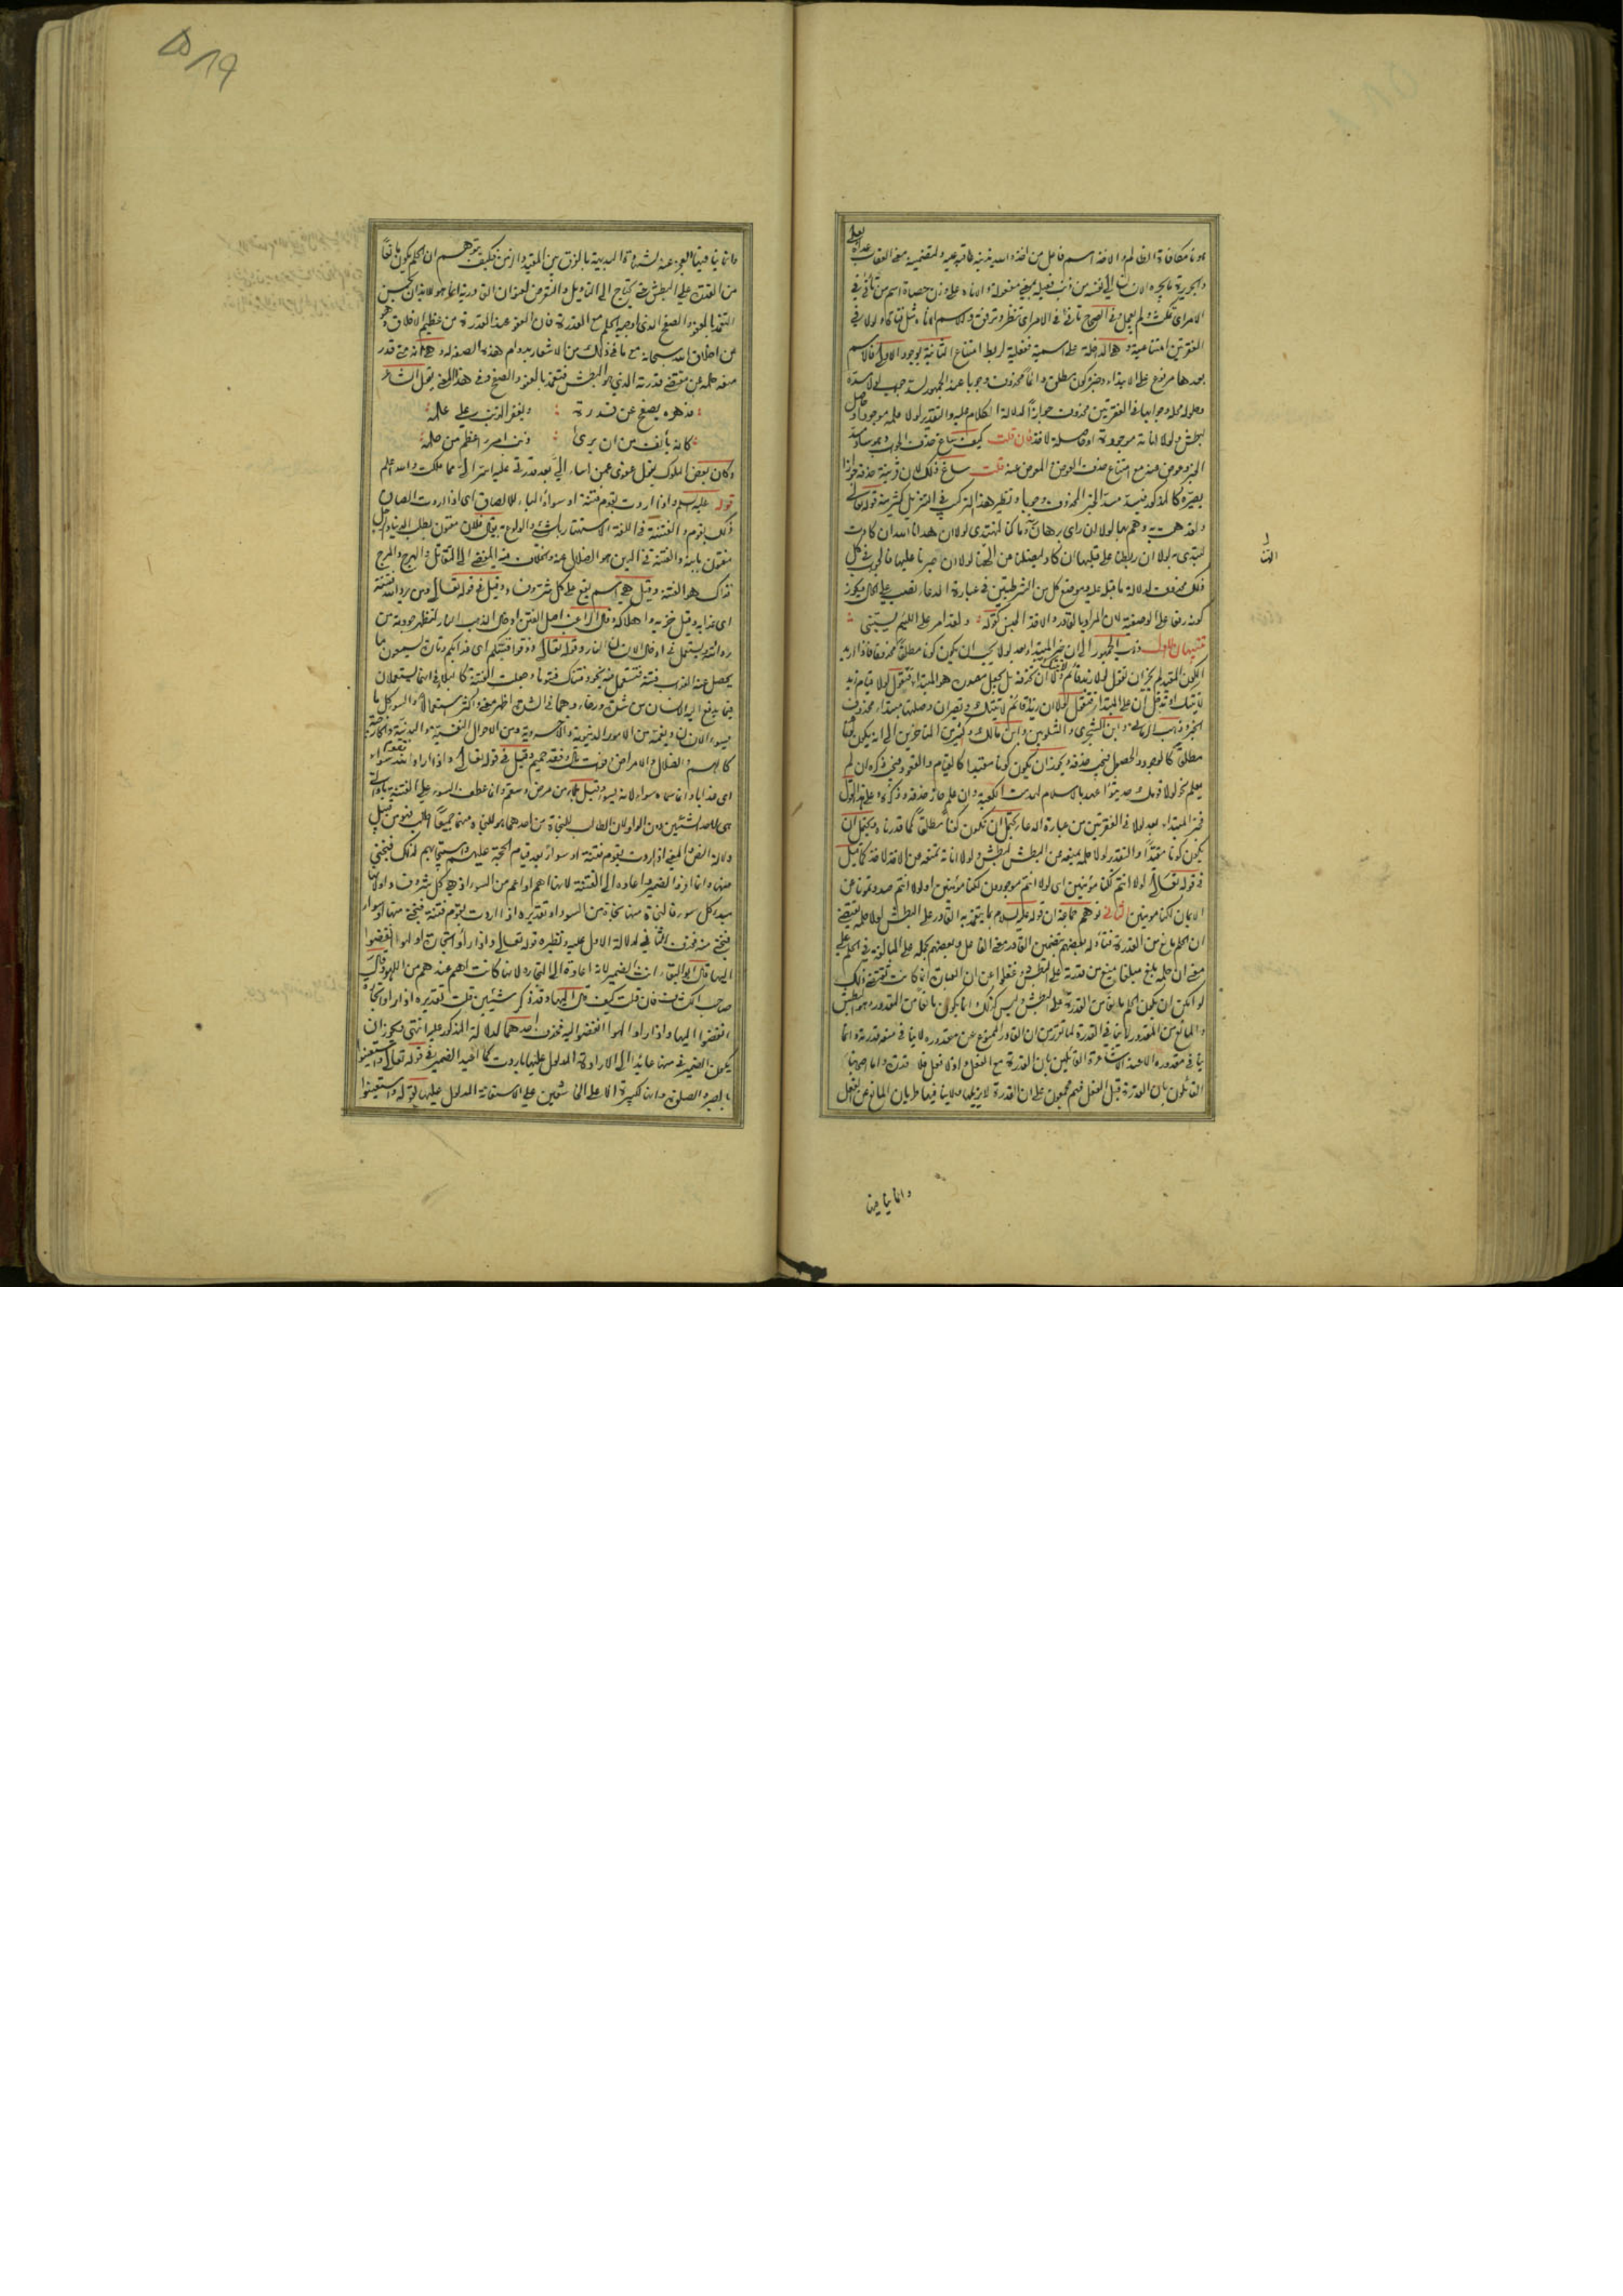 هونا مكافاة الظالم والاخذ اسم فاعل من اخذه الله بذنبه عاقبه عليه
والجريرة ما يجره الانسان الى نفسه من ذنب فعيلة بمعنى مفعولة والاناة على وزن حصاة اسم من تأنى في
الامر اى تمكث ولم يعجل وفي الصحاح تأنى في الامر اى تنظر وترفق والاسم اناة مثل قناة ولولا في
الفقرتين امتناعية وهى الداخلة على اسمية ففعلية لربط امتناع الثانية بوجود الاولى فالاسم
بعدها مرفوع على الابتداء وخبره كون مطلق دائما محذوف وجوبا عند الجمهور لسد جوابى لولا مسده
ومدلوله محل وجوابها في الفقرتين محذوف جوازا لدلالة الكلام عليه والتقدير لولا حلمه موجود او حاصل
لبطش ولولا اناته موجودة او حاصلة لاخذ فان قلت كيف ساغ حذف الجواب وهو ساد مسد
الخبر وعوض عنه مع امتناع حذف العوض والمعوض عنه قلت ساغ ذلك لان قرينة حذفه جوازا
بصيره كالمذكور فيسد مسد الخبر المحذوف وجوبا ونظير هذا التركيب في التنزيل كثير منه قوله تعالى
ولقد همت به وهم بها لولا ان راى برهان ربه وما كنا لنهتدى لولا ان هدانا الله ان كادت
لتبدى به لولا ان ربطنا على قلبها ان كاد ليضلنا عن الهتنا لولا ان صبرنا عليها فالجواب في كل
ذلك محذوف لدلالة ما قبل عليه وموضع كل من الشرطيتين في عبارة الدعاء نصب على الحال ويجوز
كونه رفعا على الوصفية لان المراد بالقادر والاخذ الجنس كقوله ولقد امر على اللئيم يسبنى
تنبيهان الاول ذهب الجمهور الى ان خبر المبتدا بعد لولا يجب ان يكون كونا مطلقا محذوفا فاذا اريد
الكون المقيد لم يجز ان تقول لولا زيد قائم ولا ان تحذفه بل يجعل مصدره هو المبتداء فتقول لولا قيام زيد
لاتيتك او تدخل ان على المبتدا فتقول لولا ان زيدا قائم لاتيتك وتصير ان وصلتها مبتداء محذوف
الخبر وذهب الرمانى وابن الشجرى والشلوبين وابن مالك وكثير من المتاخرين الى انه يكون كونا
مطلقا كالوجود والحصول فيجب حذفه ويجوز ان يكون كونا مقيدا كالقيام والقعود فيجب ذكره ان لم
يعلم نحو لولا قومك حديثوا عهد بالاسلام لهدمت الكعبة وان علم جاز حذفه وذكره وعلى هذا القول
فخبر المبتداء بعد لولا في الفقرتين من عبارة الدعاء يحتمل ان تكون كونا مطلقا كما قدرنا ويحتمل ان
يكون كونا مقيدا والتقدير لولا حلمه يمنعه من البطش لبطش ولولا اناته تمنعه من الاخذ لاخذ كما قيل
في قوله تعالى لولا انتم لكنا مؤمنين اى لولا انتم موجودون لكنا مؤمنين او لولا انتم صددتمونا عن
الايمان لكنا مومنين توهم جماعة ان قوله عليه السلام بما يتغمد به القادر على البطش لولا حلمه يقتضى
ان الحلم مانع من القدرة
معنى ان حلمه بلغ مبلغا يمنع من قدرته على البطش وغفلوا عن ان العبارة انما كانت تقتضى ذلك
لو امكن ان يكون الحلم مانعا من القدرة على البطش وليس كذلك وانما يكون مانعا من المقدور وهو البطش
والمانع من المقدور لا ينافى القدرة لما تقرر من ان القادر الممنوع عن مقدوره لا ينافى منعه قدرته وانما
ينافى مقدوره الا عند الاشاعرة القائلين بان القدرة مع الفعل واذ لا فعل فلا قدرة واما اصحابنا
القائلون بان القدرة قبل الفعل فهم مجمعون على ان القدرة لا يزيلها ولا ينافيها طريان المانع عن الفعل
وانما ينافيها
وانما ينافيها العجز عنه لشهادة البديهة بالفرق بين المقيد والزمن فكيف يتوهم ان الحلم يكون مانعا
من القدرة على البطش حتى يحتاج الى التاويل والتعرض لعنوان القادرية انما هو للايذان بحسن
التغمد بالعفو والصفح الذى اوجبه الحلم مع القدرة فان العفو عند القدرة من عظيم الاخلاق وهو
من اخلاق الله سبحانه مع ما في ذلك من الاشعار بدوام هذه الصفة له وهى انه متى قدر
منعه حلمه عن مقتضى قدرته الذى هو البطش فتغمد بالعفو والصفح وفي هذا المعنى يقول الشاعر
فدهره يصفح عن قدرة : ويغفر الذنب على علمه
كانه يأنف من ان يرى : ذنب امرء اعظم من حلمه
وكان بعض الملوك يقول عفوى عمن اساء الى بعد قدرتى عليه اسر الى مما ملكت والله اعلم
قوله عليه السلام واذا اردت بقوم فتنة او سواء الباء للالصاق اى اذا اردت الصاق
ذلك بقوم والفتنة في اللغة الاستهتار بالشئ والولوع به يقال فلان مفتون بطلب الدنيا وآجل
مفتون بابنه والفتنة في الدين هو الضلال عنه ويختلف فيه المفضى الى التقاتل والهرج والمرج
فذاك هو الفتنة وقيل هى اسم يقع على كل شر وفساد وقيل في قوله تعالى ومن يرد الله فتنته
اى عذابه وقيل خزيه واهلاكه وقال الراغب اصل الفتن ادخال الذهب النار لتظهر جودته من
رداءته ويستعمل في ادخال الانسان النار وقوله تعالى ذوقوا فتنتكم اى عذابكم وتارة يسمون ما
يحصل عنه العذاب فتنة فتستعمل فيه نحو وفتناك فتونا وجعلت الفتنة كالبلاء في انهما يستعملان
فيما يدفع اليه الانسان من شدة ورخاء وهما في الشدة اظهر معنى واكثر استعمالا والسوء كل ما
يسوء الانسان ويغمه من الامور الدنيوية والاخروية ومن الاحوال النفسية والبدنية والخارجة
كالهم والضلال والامراض وفوات مال وفقد حميم وقيل في قوله تعالى واذا اراد الله بقوم سوءا
اى عذابا وانما سماه سوءا لانه يسوء وقيل بلاء من مرض وسقم وانما عطف السوء على الفتنة باو التى
هى للاحد الشيئين دون الواو لان الطالب للنجاة من احدهما هو للنجاة منهما جميعا اطلب فهو من قبيل
دلالة النص والمعنى اذا اردت بقوم فتنة او سوءا بعد قيام الحجة عليهم واستيجابهم لذلك فنجنى
منها وانما افرد الضمير واعاده الى الفتنة لانها اهم او اعم من السوء اذ هى كل شر وفساد او لانها
مبدا كل سوء فالنجاة منها نجاة من السوء او تقديره اذا اردت بقوم فتنة فنجنى منها او سوءا
فنجنى منه فحذف الثانى لدلالة الاول عليه ونظيره قوله تعالى واذا رأوا تجارة او لهوا انفضوا
اليها قال ابو البقاء انث الضمير لانه اعاده الى التجارة لانها كانت اهم عندهم من اللهو وقال
صاحب الكشاف فان قلت كيف قال اليها وقد ذكر شيئين قلت تقديره اذا راوا تجارة
انفضوا اليها واذا راوا لهوا انفضوا اليه فحذف احدهما لدلالة المذكور عليه انتهى ويجوز ان
يكون الضمير في منها عائدا الى الارادة المدلول عليها باردت كما اعيد الضمير في قوله تعالى واستعينوا
بالصبر والصلوة وانها لكبيرة الا على الخاشعين على الاستعانة المدلول عليها بقوله واستعينوا